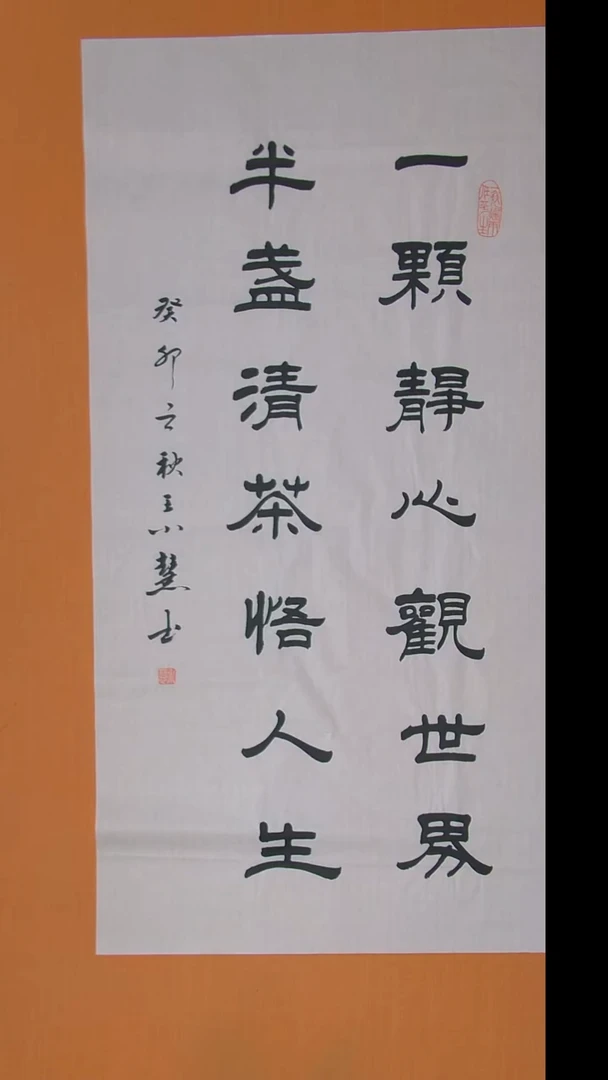 一顆靜心觀世界
半盞清茶悟人生
癸卯秋慧书